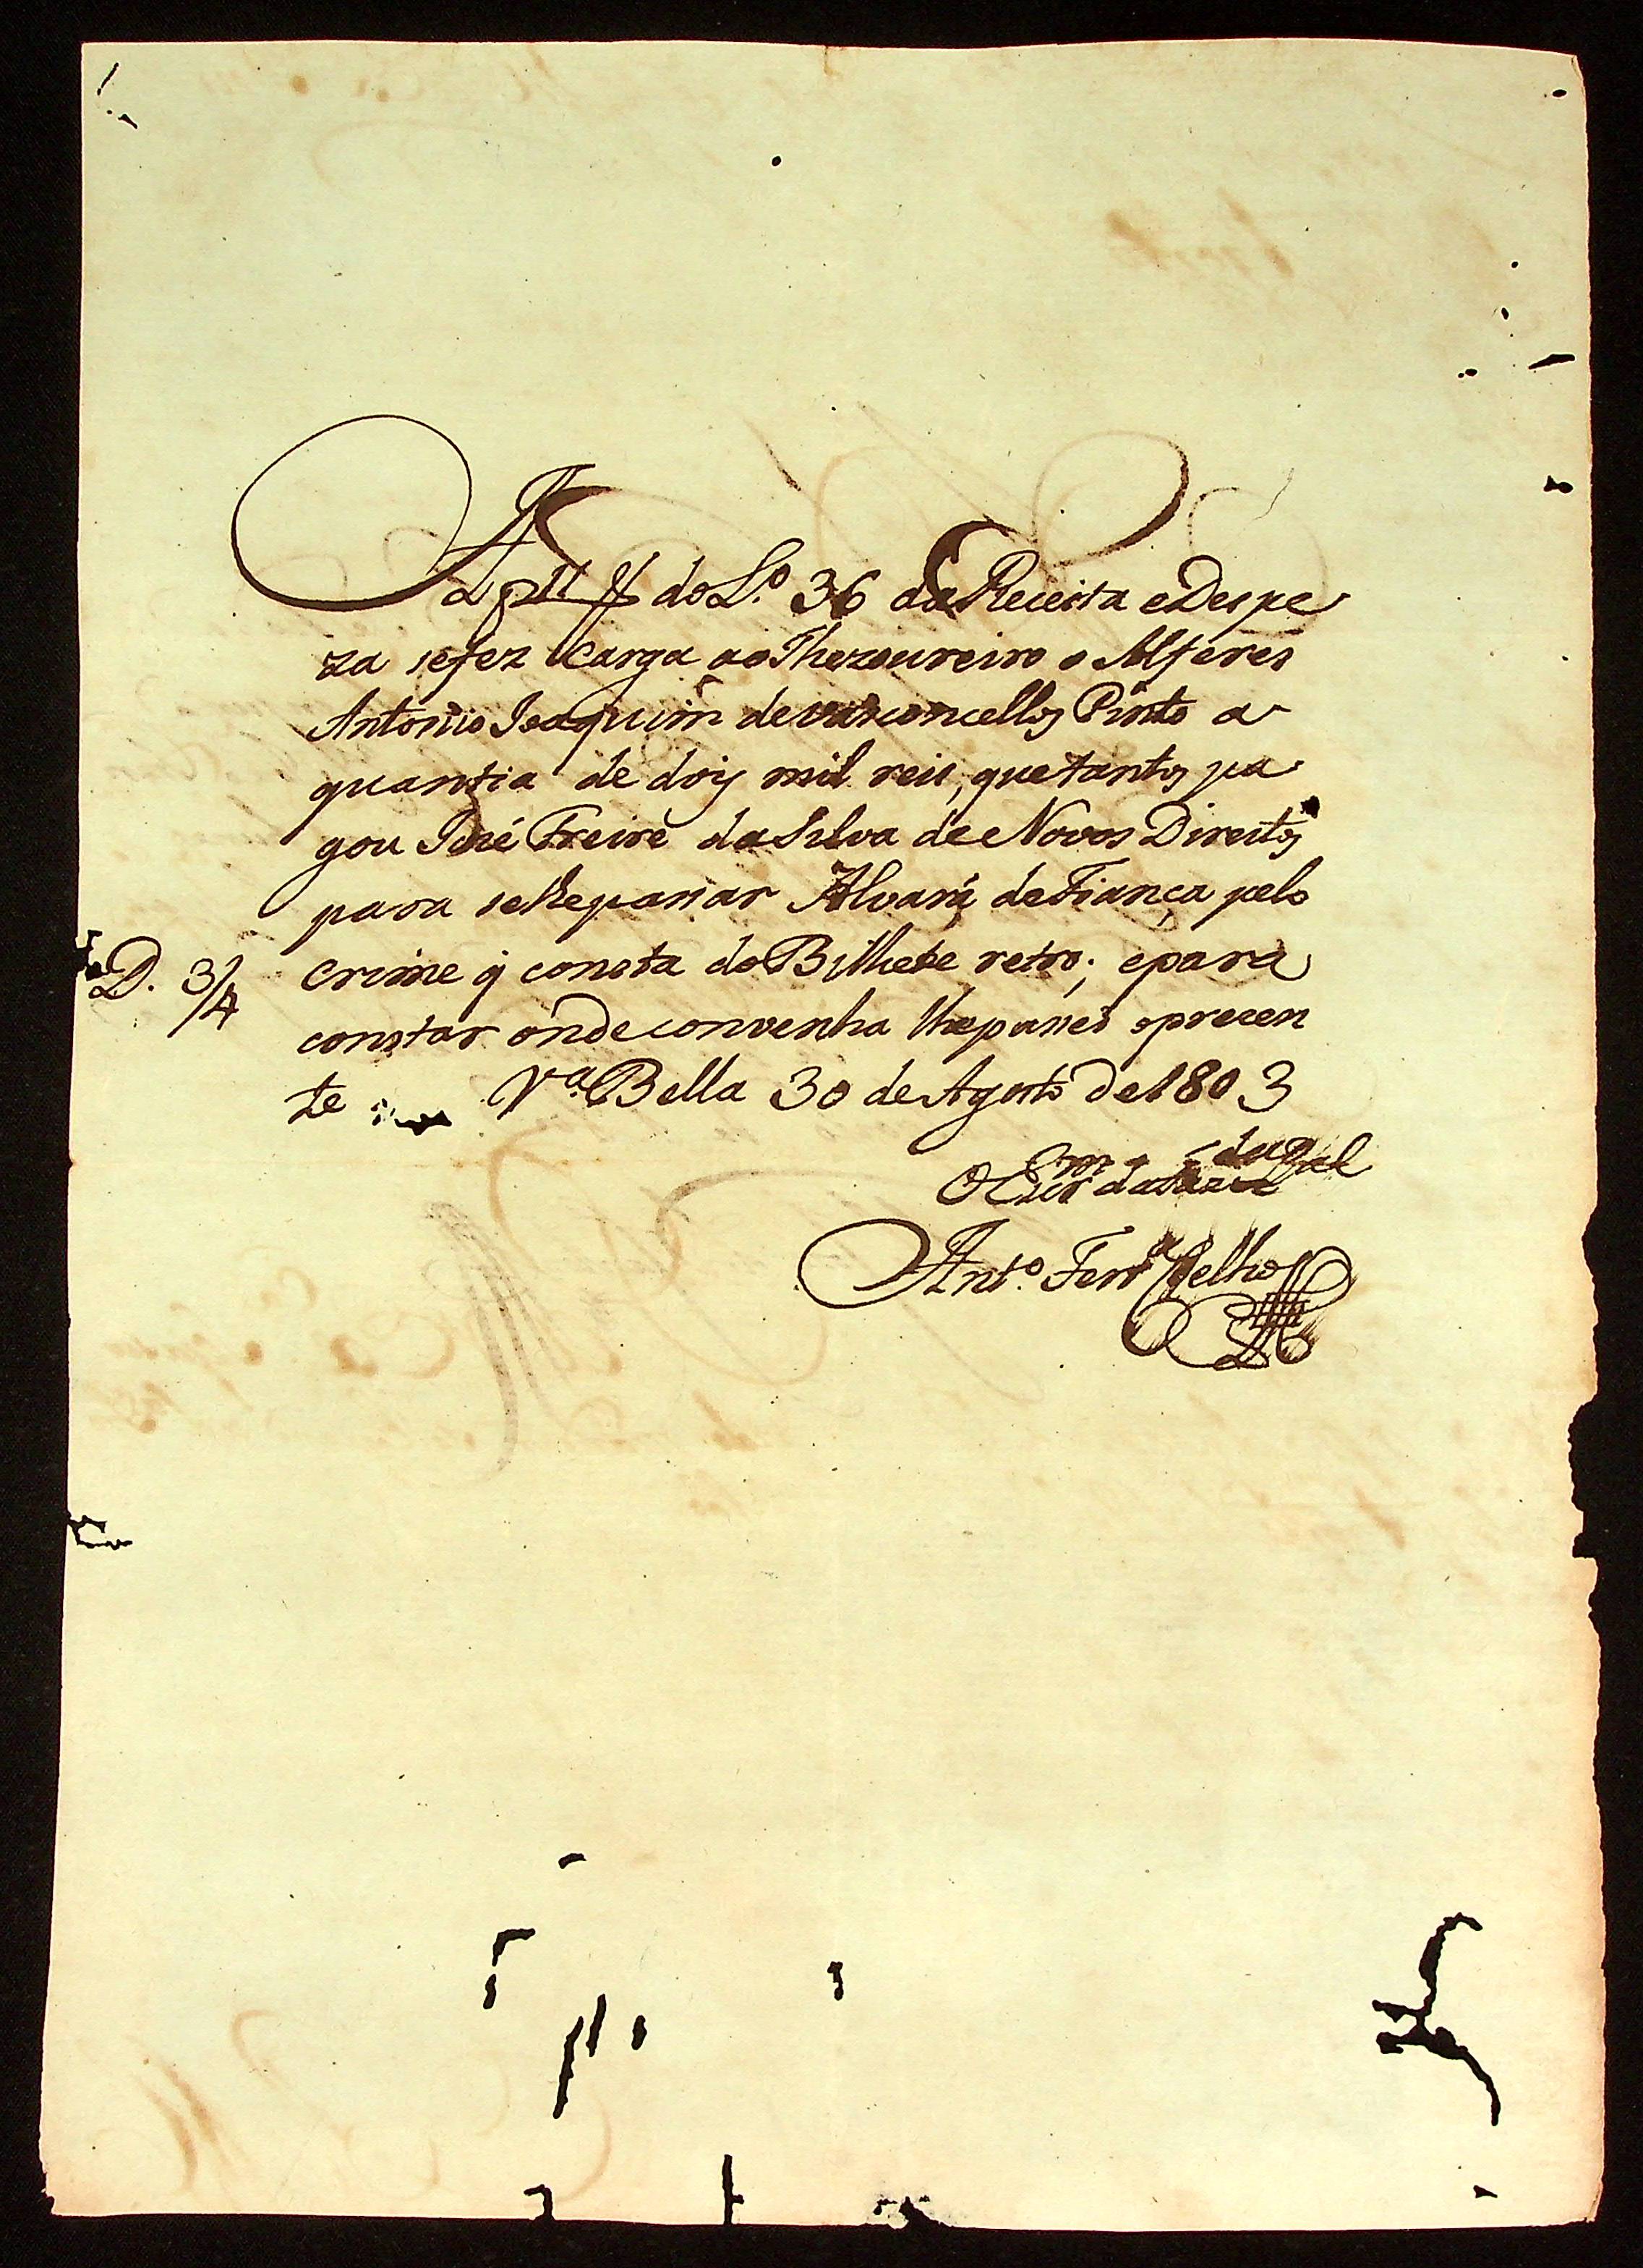 A f 11 do L.º 36 da Receita e Despe
za se fez Carga ao Thezoureiro o Alferes
Antonio Joaquim de Vasconcellos Pinto a
quantia de dois mil reis, que tantos pa
gou José Freire da Silva de Novos Direitos
para se lhe passar Alvará de Fiança pelo
crime q̃ consta do Bilhete retro; e para
D. 3/4
constar onde convenha lhe passei o prezen
te V.ª Bella 30 de Agosto de 1803
O Escr.m da
Ant.º Ferr.ª Coelho